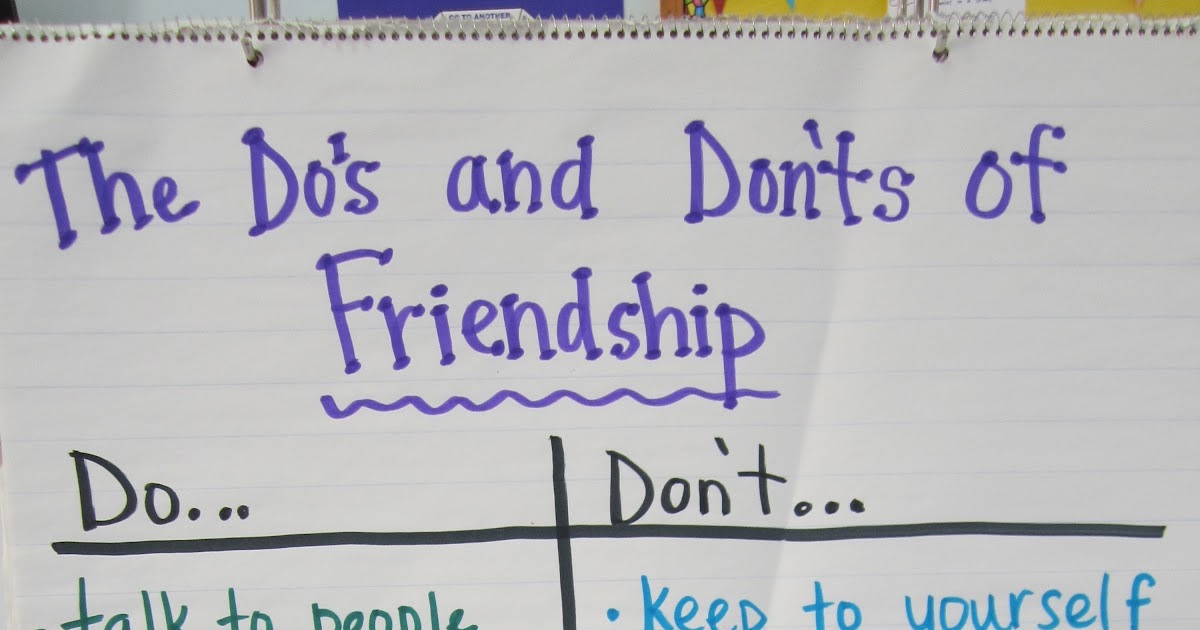 GO TO ANOTHER
The Do's and Don'ts of
Friendship
Do...
Don't...
• talk to people
• keep to yourself